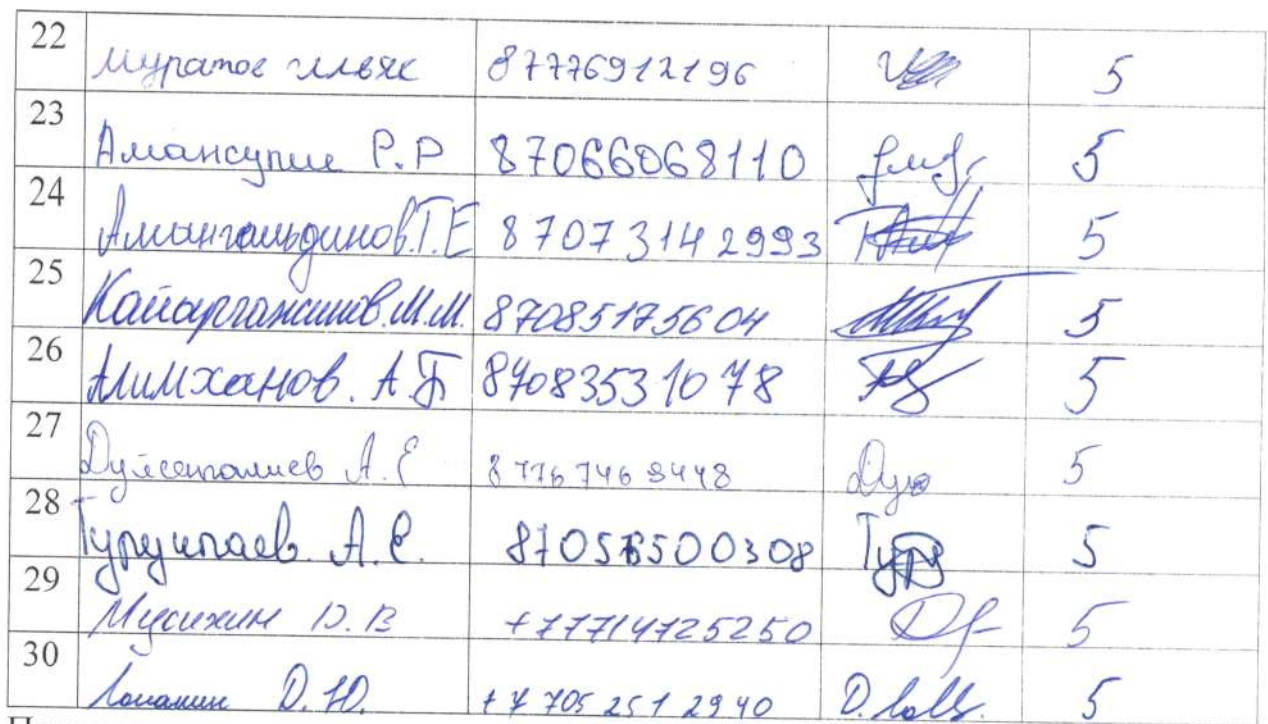 22 Муратов Ильяс 87776912196 5
23 Амансупие Р.Р 87066068110 5
24 Амангальдинов.Т.Е 87073142993 5
25 М.М. 87085175604 5
26 Алимханов. А.Б 87083531078 5
27 Дуйсенгалиев А.Е 87767469448 5
28 А.Е. 5
29 Мусихин Д.В +77714725250 5
30 Лопатин Д.Ю. +7 705 251 2940 5